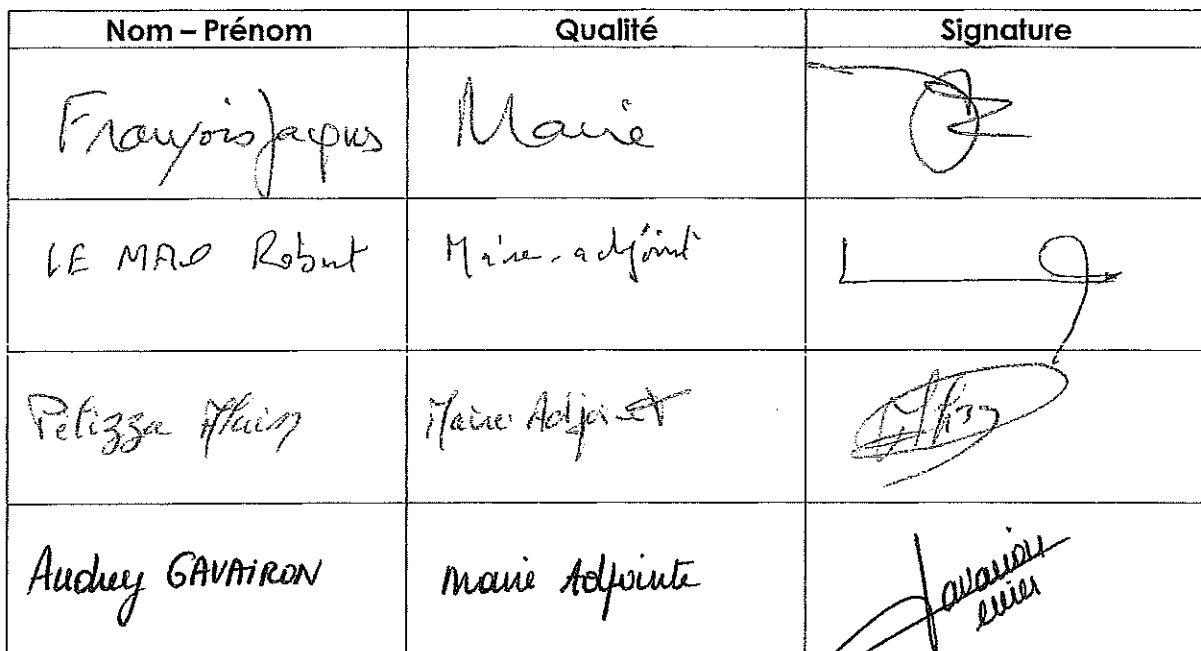 Nom – Prénom Qualité Signature
François Jacques Maire
LE MAO Robert Maire-adjoint
Pelizza Alain Maire Adjoint
Audrey GAVAIRON Maire Adjointe